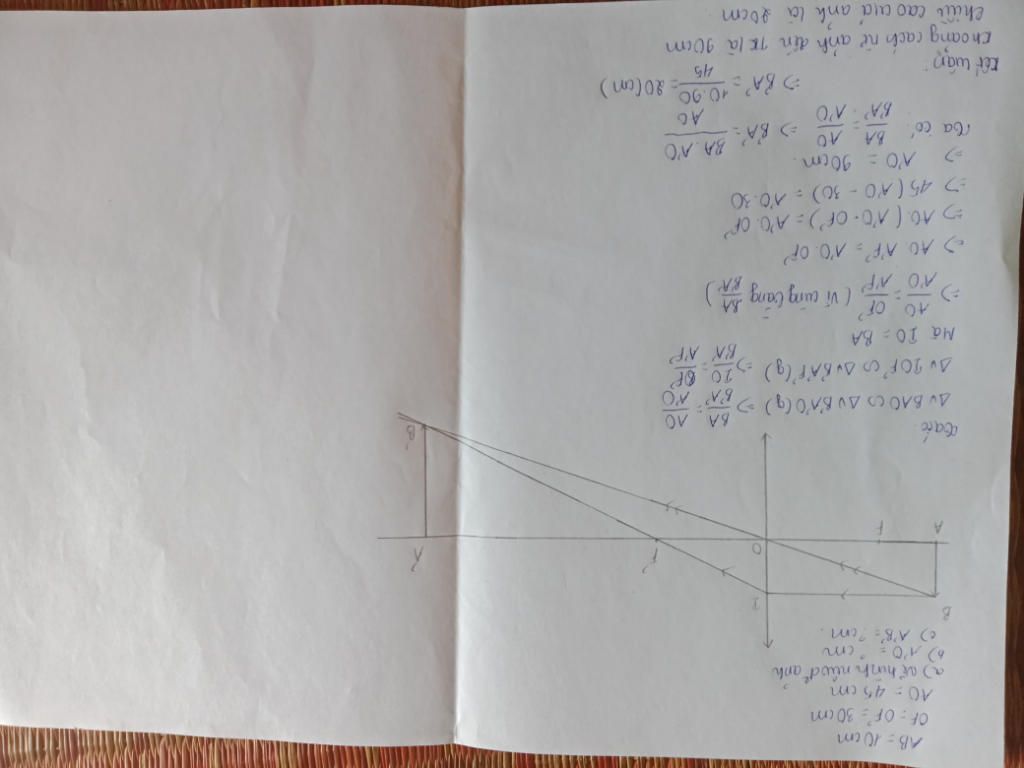 AB = 10 cm
OF = OF' = 30 cm
AO = 45 cm
a) vẽ hình nêu đ² ảnh
b) A'O = ? cm
c) A'B' = ? cm.
B
I
A
F
O
F'
A'
B'
Ta có:
Δv BAO ∽ Δv B'A'O (g) => BA/B'A' = AO/A'O
Δv IOF' ∽ Δv B'A'F' (g) => IO/B'A' = OF'/A'F'
Mà IO = BA
=> AO/A'O = OF'/A'F' ( vì cùng bằng BA/B'A' )
=> AO. A'F' = A'O. OF'
=> AO. (A'O - OF') = A'O. OF'
=> 45 (A'O - 30) = A'O. 30
=> A'O = 90 cm.
Ta có: BA/B'A' = AO/A'O => B'A' = BA. A'O/AO
=> B'A' = 10.90/45 = 20 (cm)
Kết luận:
Khoảng cách từ ảnh đến TK là 90 cm
chiều cao của ảnh là 20 cm.